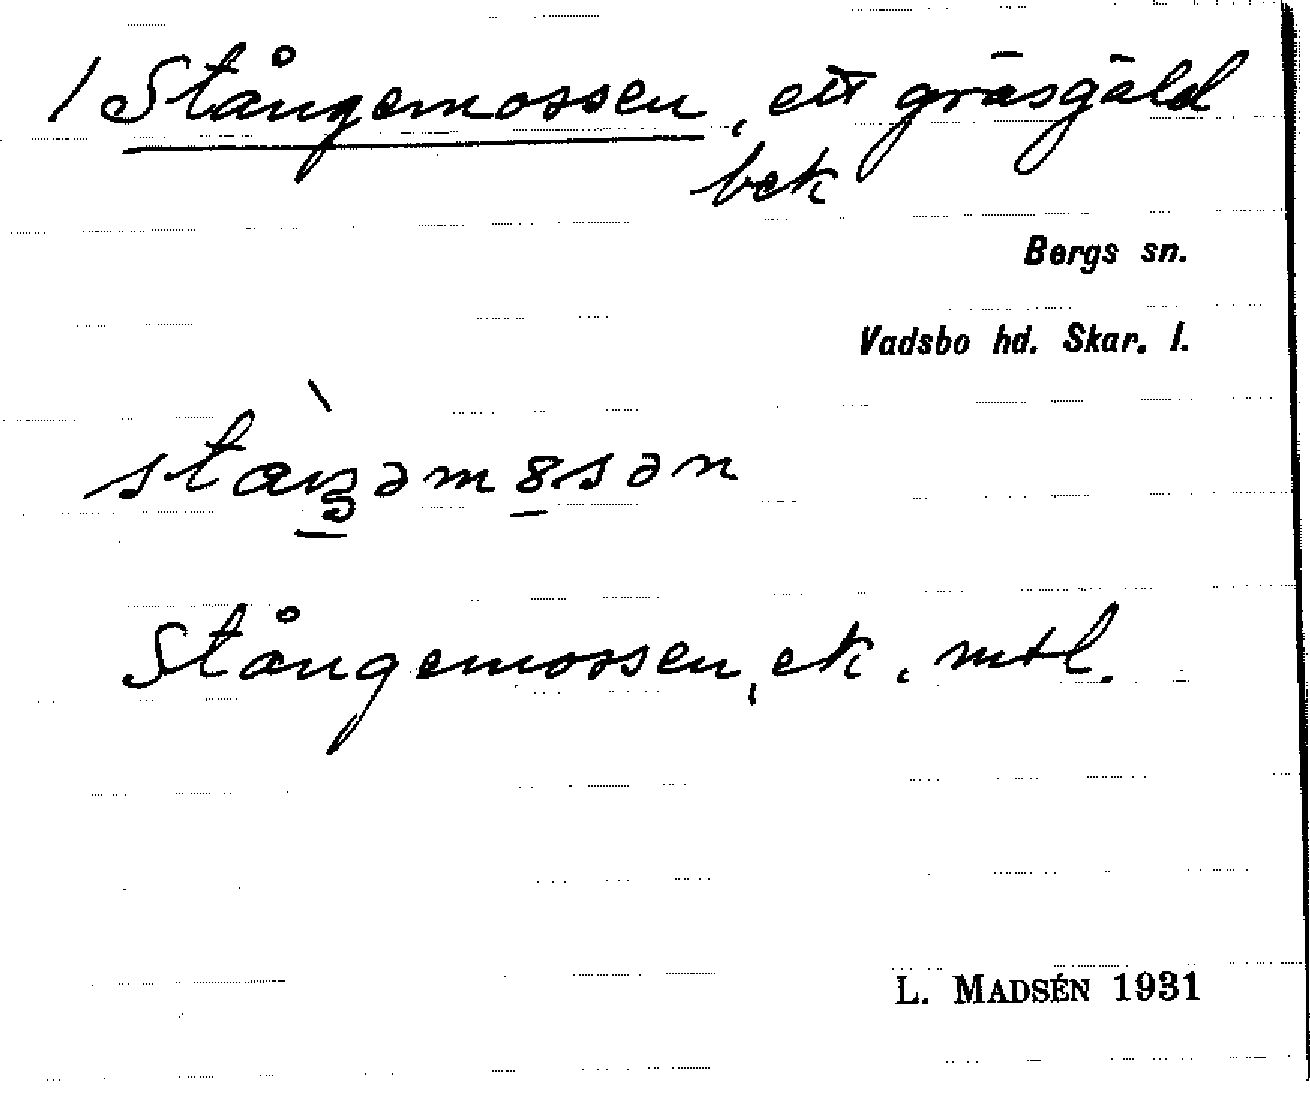 1 Stångemossen, ett gräsgäld
bek
Bergs sn.
Vadsbo hd. Skar. l.
Stångemossen, ek. mtl.
L. MADSÉN 1931